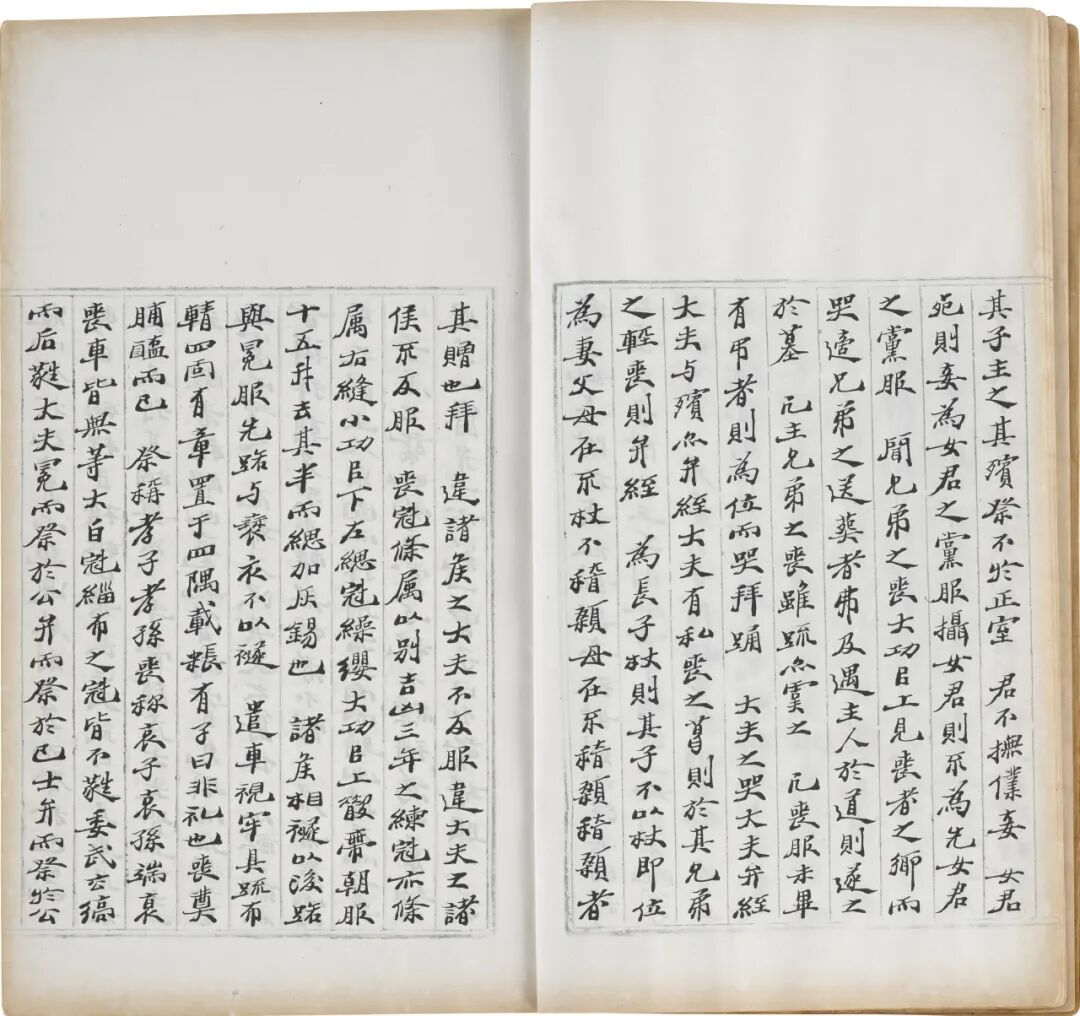 其子主之其殯祭不於正室　君不撫僕妾　女君
死則妾為女君之黨服攝女君則不為先女君
之黨服　聞兄弟之喪大功㠯上見喪者之鄉而
哭適兄弟之送葬者弗及遇主人於道則遂之
於墓　凡主兄弟之喪雖疏亦虞之　凡喪服未畢
有弔者則為位而哭拜踊　大夫之哭大夫弁絰
大夫与殯亦弁絰大夫有私喪之葛則於其兄弟
之輕喪則弁絰　為長子杖則其子不以杖即位
為妻父母在不杖不稽顙母在不稽顙稽顙者
其贈也拜　違諸侯之大夫不反服違大夫之諸
侯不反服　喪冠條属以別吉凶三年之練冠亦條
属右縫小功㠯下左緦冠繰纓大功㠯上散帶朝服
十五升去其半而緦加灰錫也　諸侯相襚以後路
與冕服先路与襃衣不以襚　遣車視牢具疏布
輤四面有章置于四隅載粻有子曰非礼也喪奠
脯醢而已　祭稱孝子孝孫喪称哀子哀孫端衰
喪車皆無等大白冠緇布之冠皆不蕤委武玄縞
而后蕤大夫冕而祭於公弁而祭於己士弁而祭於公